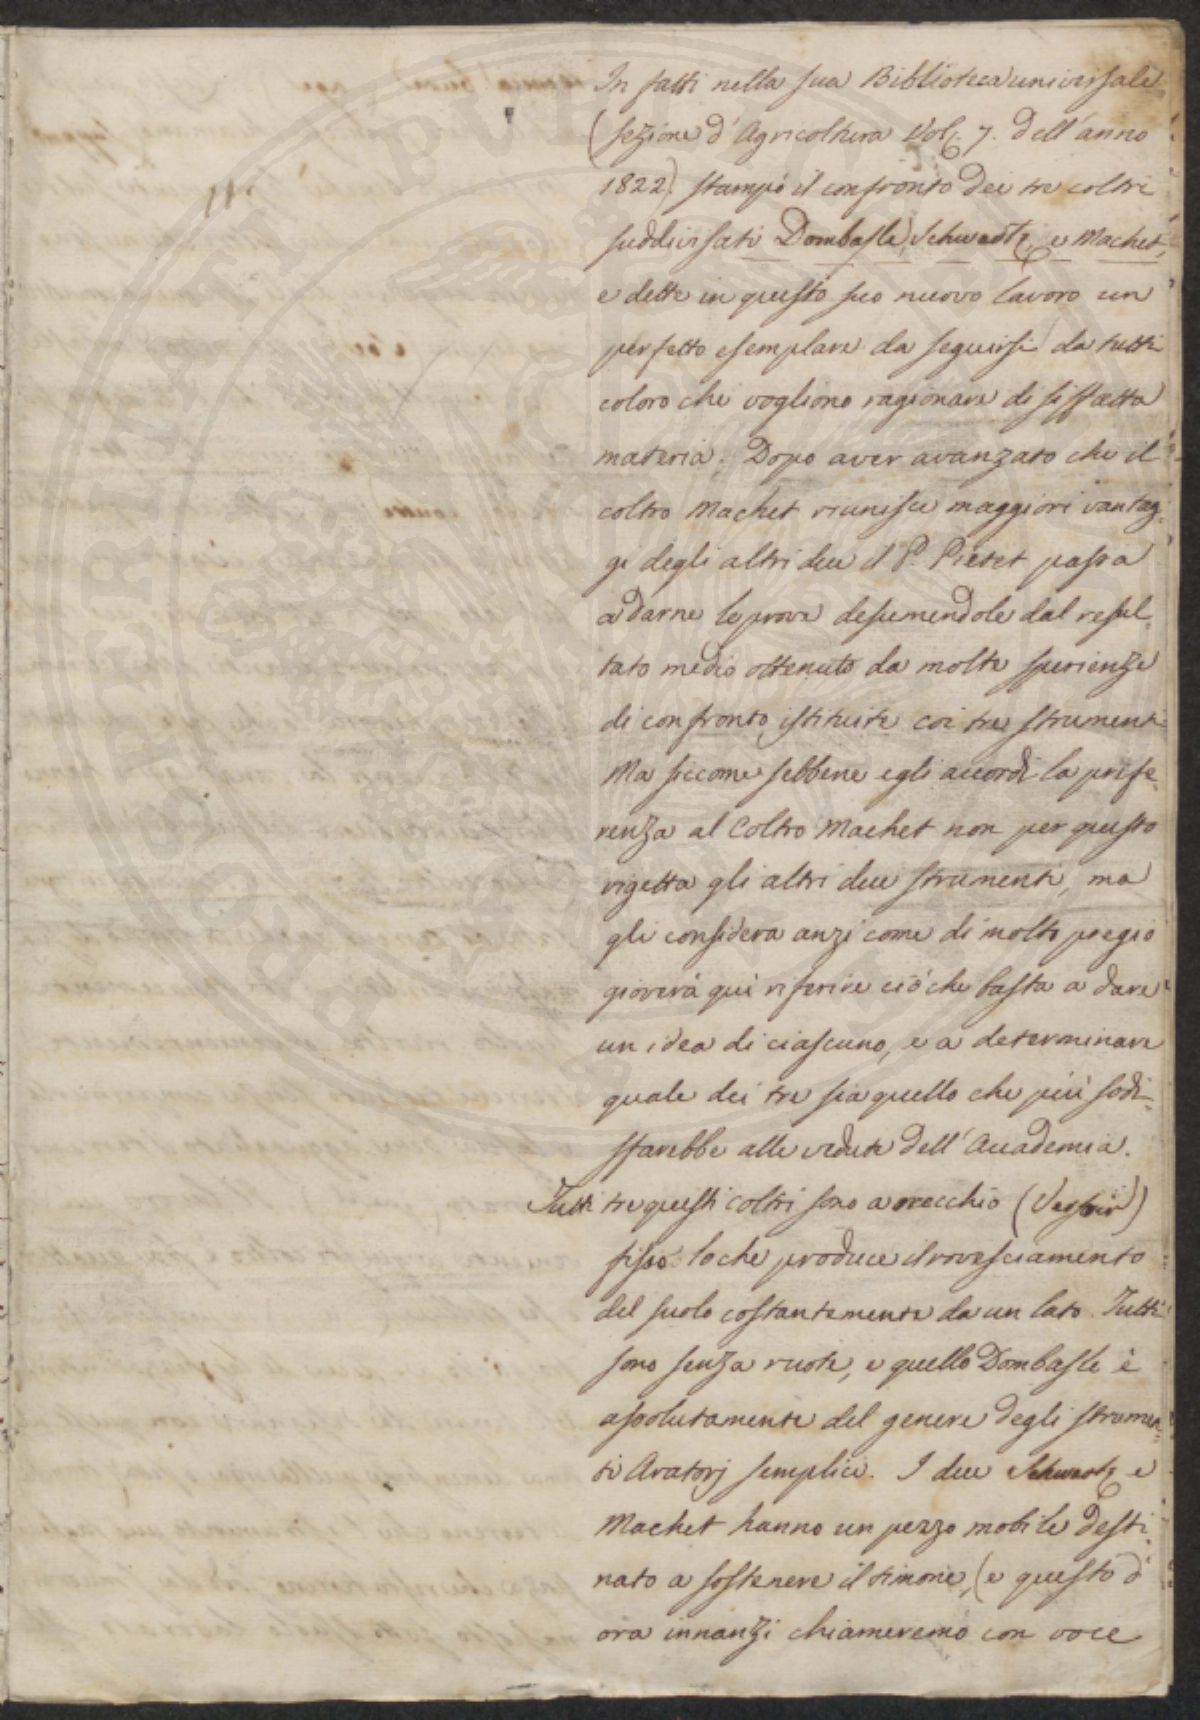 In fatti nella sua Biblioteca universale
(sezione d'Agricoltura Vol. 7. dell'anno
1822) stampò il confronto dei tre coltri
suddivisati Dombasle, Schwartz, e Machet,
e dette in questo suo nuovo lavoro un
perfetto esemplare da seguirsi da tutti
coloro che vogliono ragionare di siffatta
materia. Dopo aver avanzato che il
coltro Machet riunisce maggiori vantag-
gi degli altri due il P. Pictet passa
a darne le prove desumendole dal resul-
tato medio ottenuto da molte sperienze
di confronto istituite coi tre strumenti
Ma siccome sebbene egli accordi la prefe-
renza al Coltro Machet non per questo
rigetta gli altri due strumenti, ma
gli considera anzi come di molto pregio
gioverà quì riferire ciò che basta a dare
un idea di ciascuno, e a determinare
quale dei tre sia quello che più sodi-
sfarebbe alle vedute dell'Accademia.
Tutti tre questi coltri sono a orecchio (Versoir)
fisso loche produce il rovesciamento
del suolo costantemente da un lato. Tutti
sono senza ruote, e quello Dombasle è
assolutamente del genere degli strumen-
ti Aratorj semplici. I due Schwartz e
Machet hanno un pezzo mobile desti-
nato a sostenere il timone, (e questo d'
ora innanzi chiameremo con voce